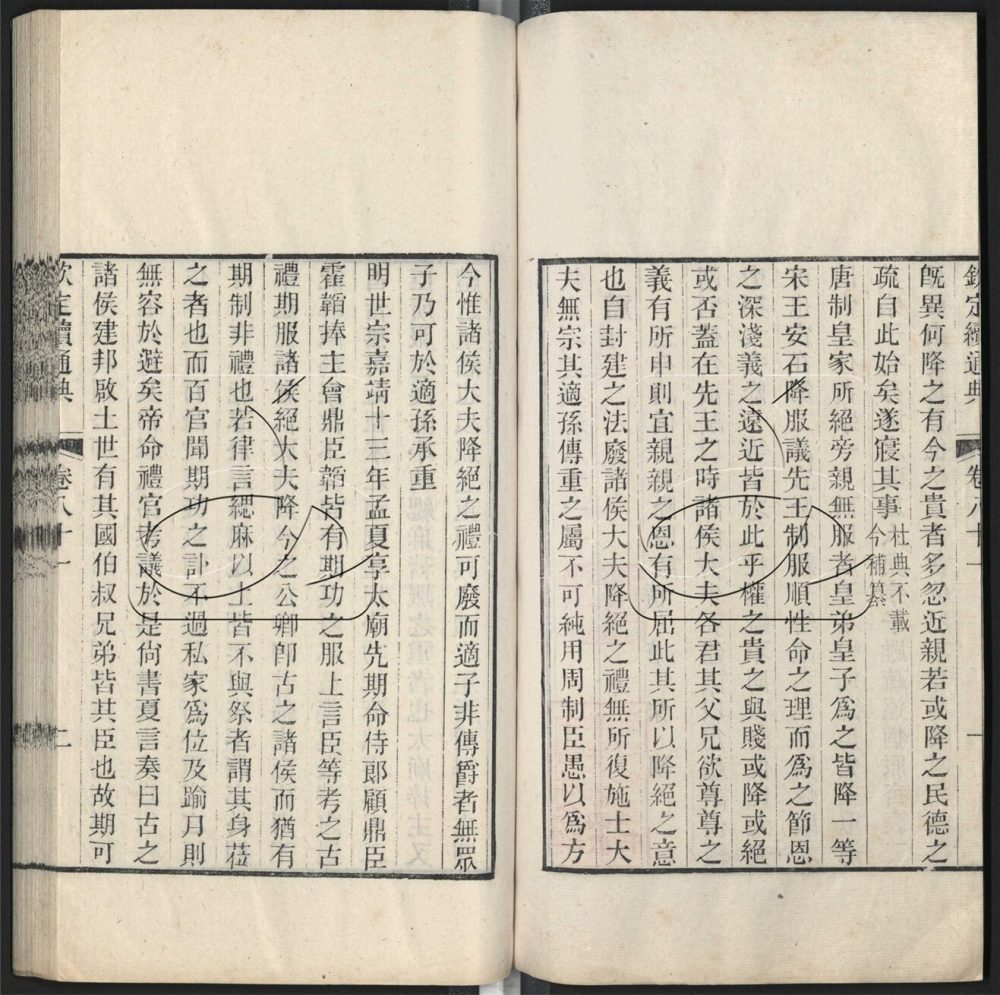 欽定續通典 卷八十 一
既異何降之有今之貴者多忽近親若或降之民德之
疏自此始矣遂寢其事杜典不載今補纂
唐制皇家所絕旁親無服者皇弟皇子爲之皆降一等
宋王安石降服議先王制服順性命之理而爲之節恩
之深淺義之遠近皆於此乎權之貴之與賤或降或絕
或否蓋在先王之時諸侯大夫各君其父兄欲尊尊之
義有所申則宜親親之恩有所屈此其所以降絕之意
也自封建之法廢諸侯大夫降絕之禮無所復施士大
夫無宗其適孫傳重之屬不可純用周制臣愚以爲方
今惟諸侯大夫降絕之禮可廢而適子非傳爵者無眾
子乃可於適孫承重
明世宗嘉靖十三年孟夏享太廟先期命侍郎顧鼎臣
霍韜捧主會鼎臣韜皆有期功之服上言臣等考之古
禮期服諸侯絕大夫降今之公卿卽古之諸侯而猶有
期制非禮也若律言緦麻以上皆不與祭者謂其身蒞
之者也而百官聞期功之訃不過私家爲位及踰月則
無容於避矣帝命禮官考議於是尙書夏言奏曰古之
諸侯建邦啟土世有其國伯叔兄弟皆其臣也故期可
欽定續通典 卷八十一 二